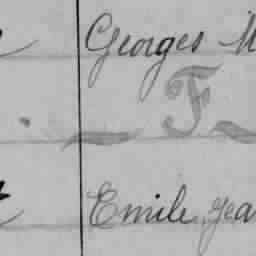 Georges M
F
Emile Jea